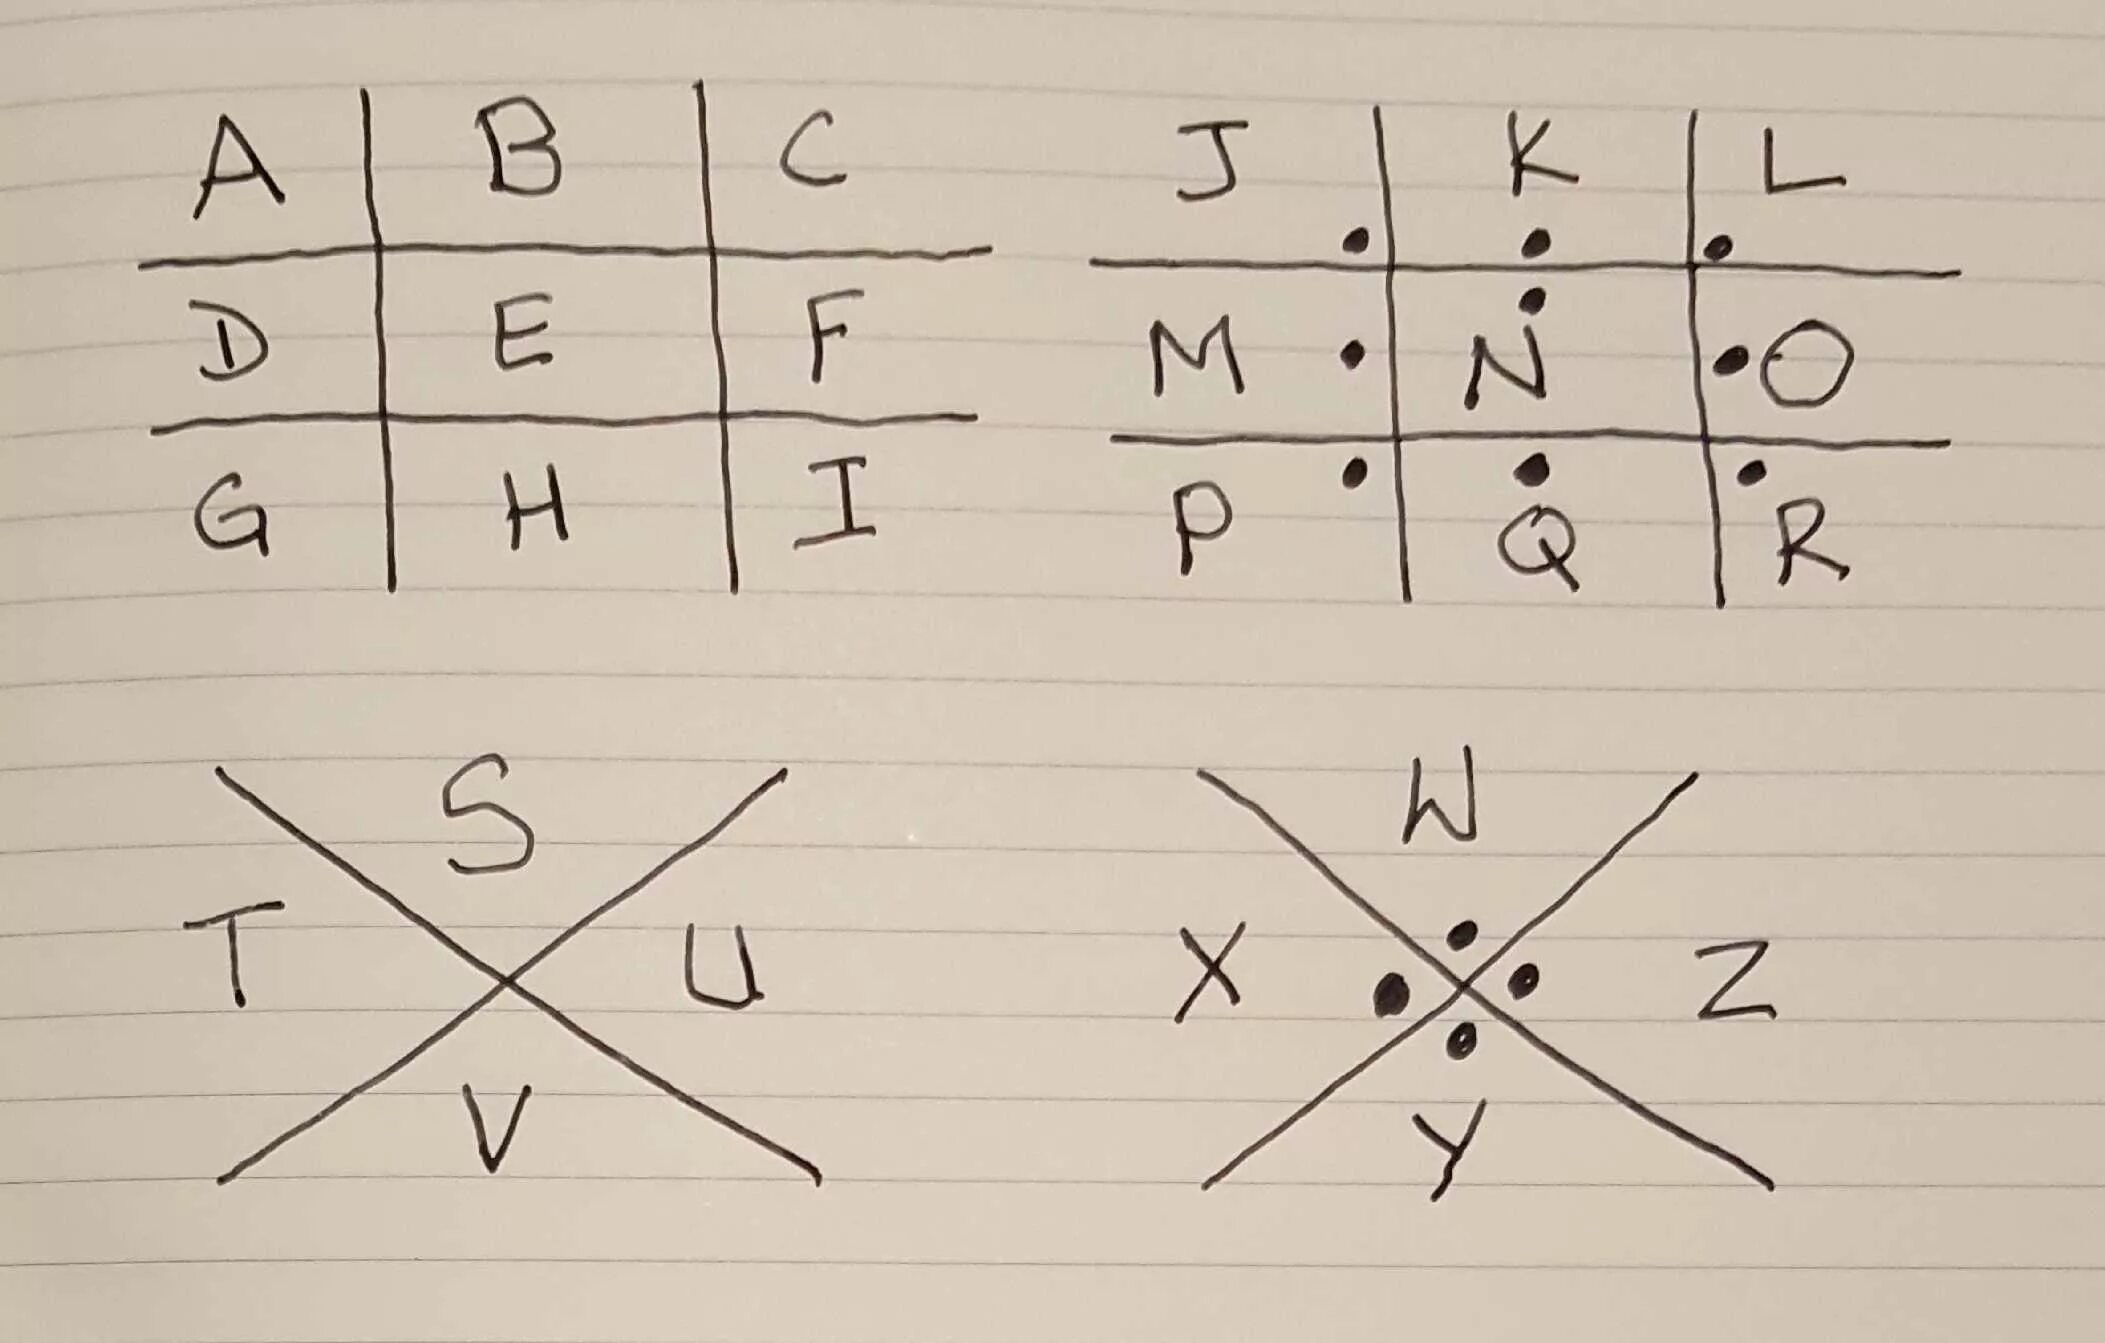 A B C
D E F
G H I
J K L
M N O
P Q R
S
T U
V
W
X Z
Y